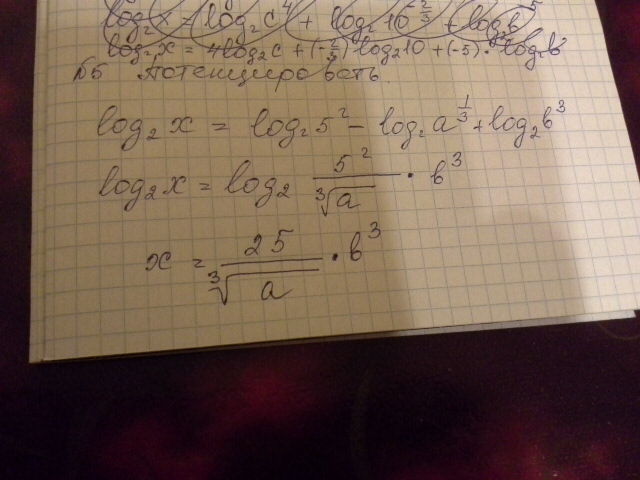 log₂x = log₂c⁴ + log₂10^(-2/3) + log₂b⁻⁵
log₂x = 4log₂c + (-2/3) log₂10 + (-5) · log₂b
№5 Потенцировать.
log₂x = log₂5² - log₂a^(1/3) + log₂b³
log₂x = log₂ 5²/∛a · b³
x = 25/∛a · b³